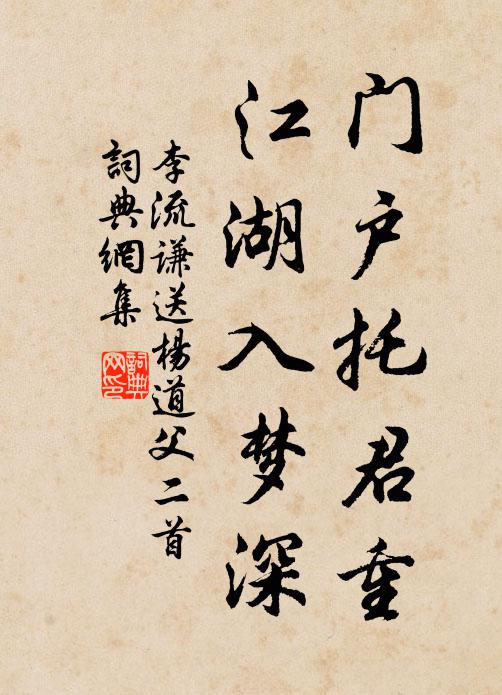 门户托君重
江湖入梦深
李流谦送楊道父二首
詞典網集
詞典
网印